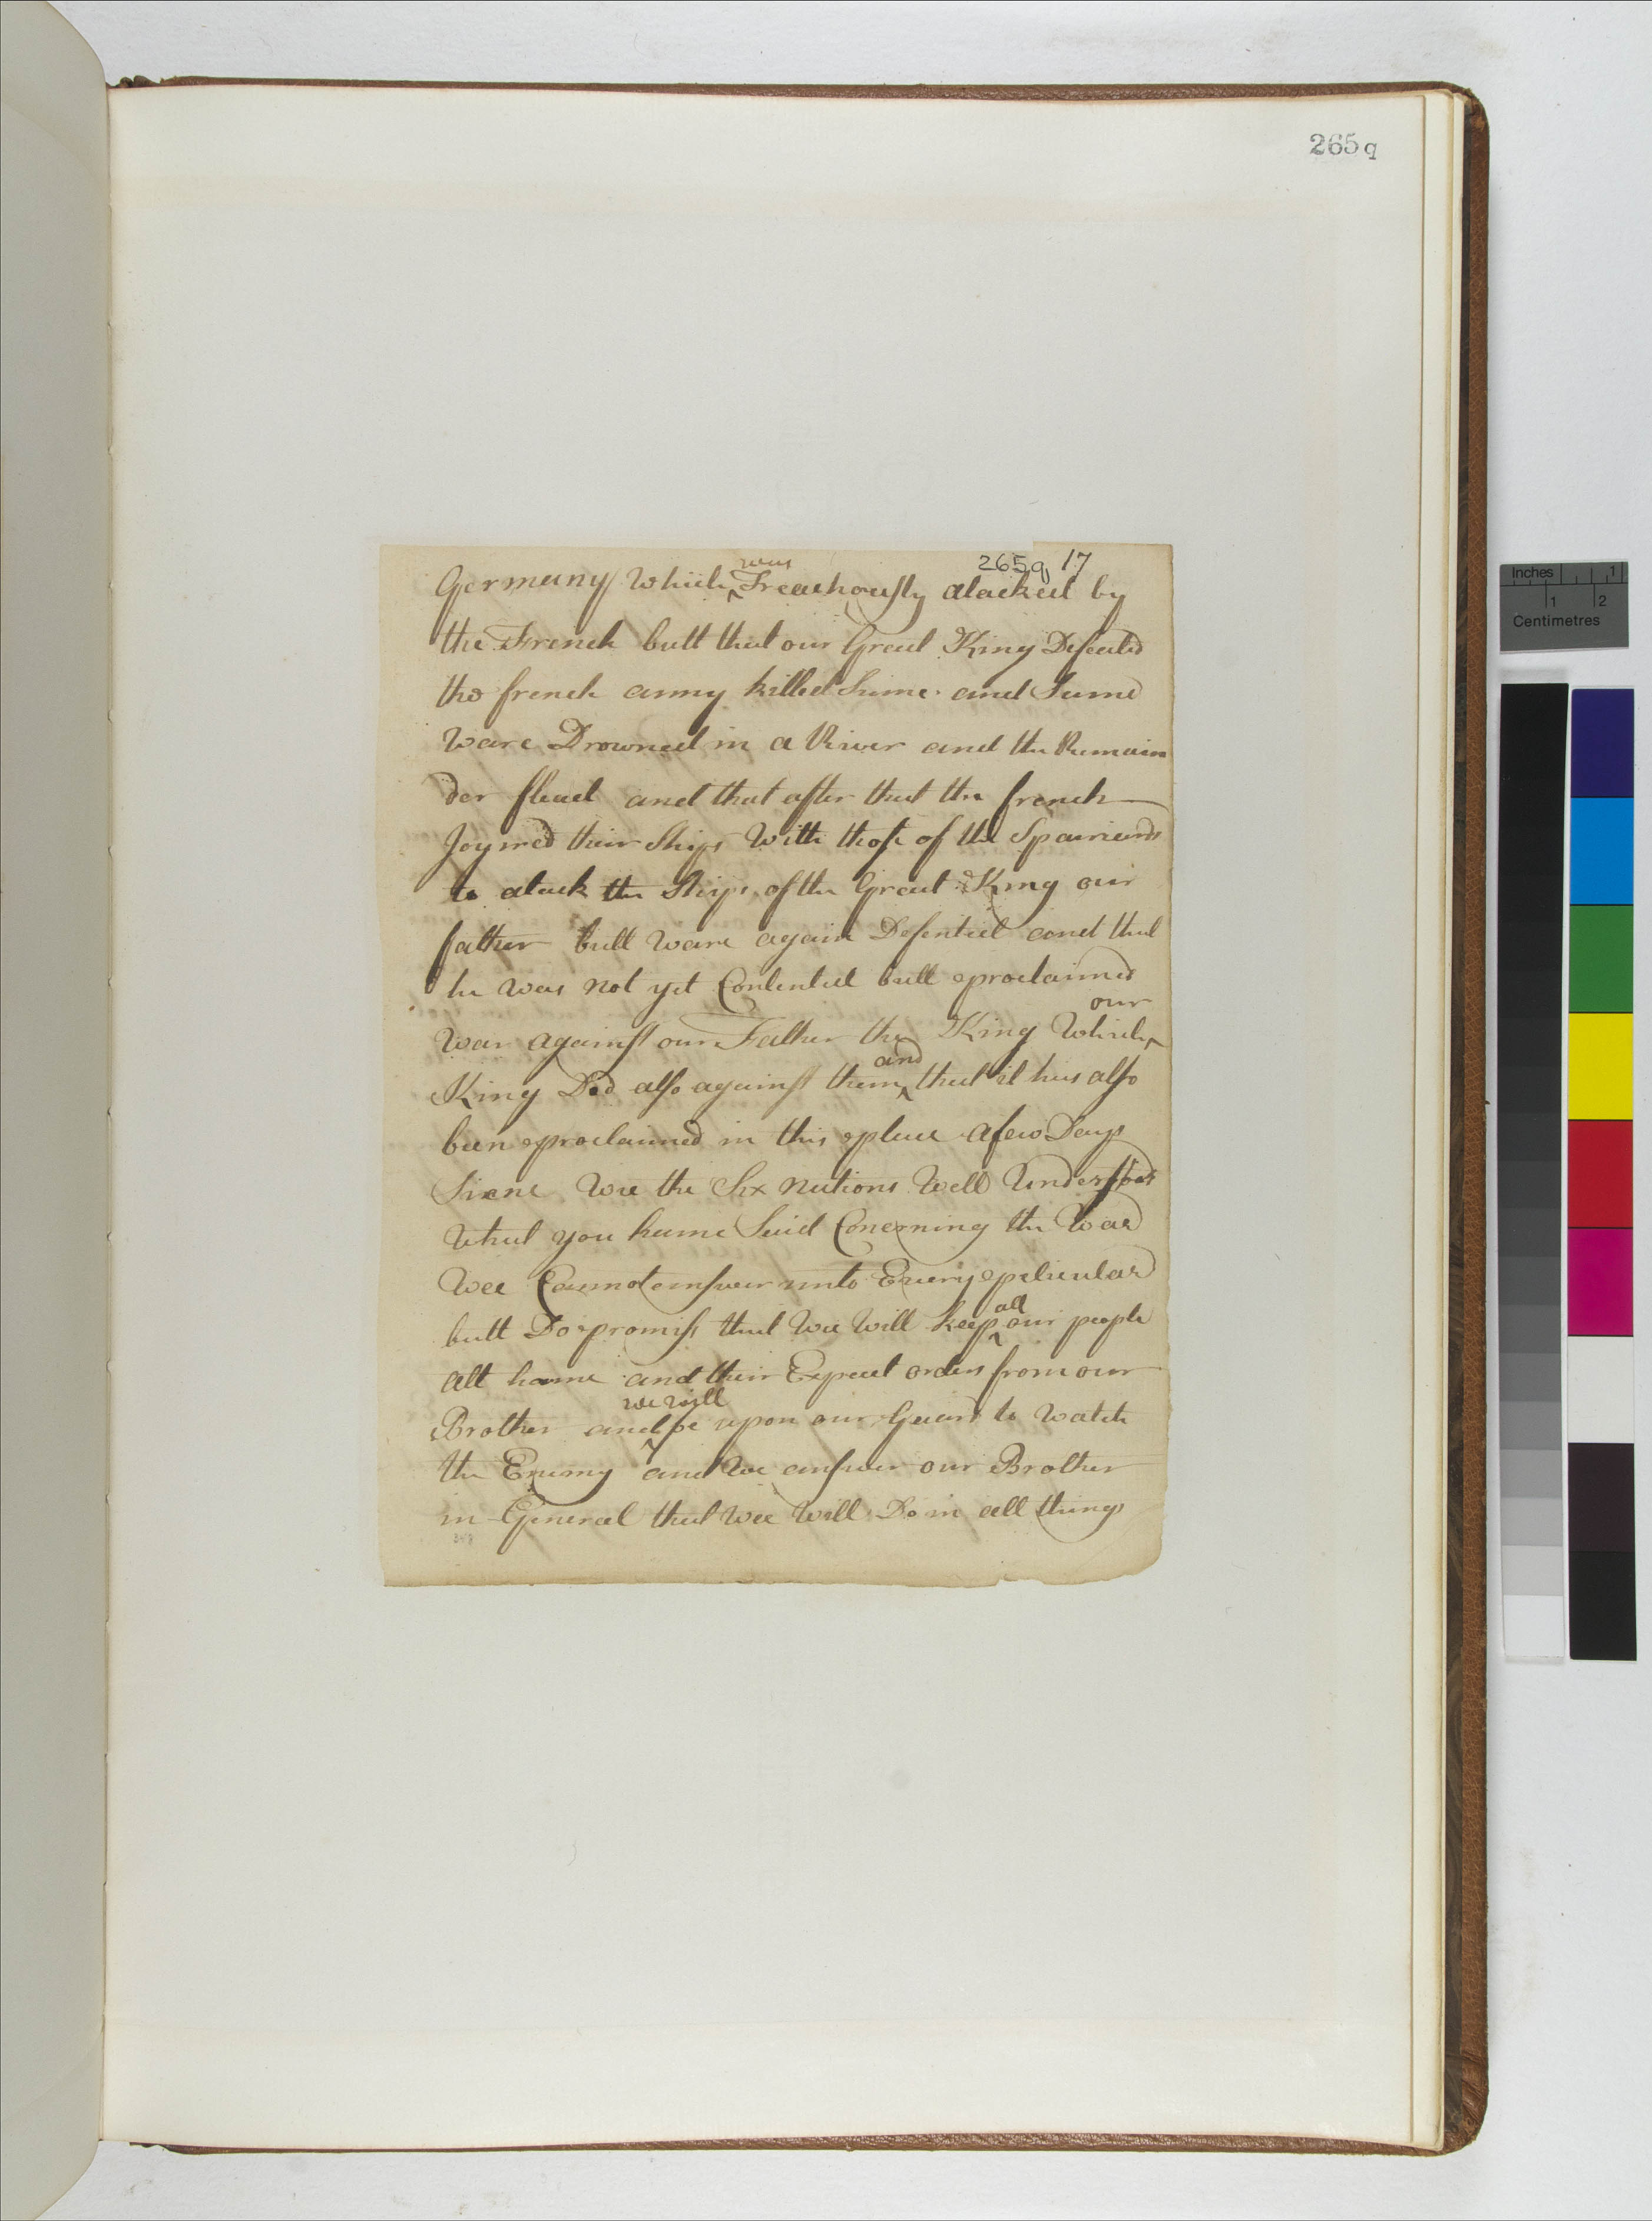 265q
265q 17
Germany which ^was Treachously atacked by
the French butt that our Great King Defeated
the french army killed Sume and Sume
Ware Drowned in a River and the Remain
der flead and that after that the french
Joyned their Ships With those of the Spaniards
to atack the Ships of the Great King our
father butt Ware again Defented and that
he was not yet Contented butt proclaimed
War against our Father the King Which ^our
King Did also against them ^and that it has also
been proclaimed in this place a few Days
Sinene Wee the Six Nations Well Understood
What you hame Said Conerning the War
Wee Cannot answer unto Every peticular
butt Do promiss that Wee Will keep ^all our people
att home and their Expect orders from our
Brother and ^we will be upon our Guard to Watch
the Enemy and We answer our Brother
in General that Wee Will Do in all things
Inches 1
1 2
Centimetres